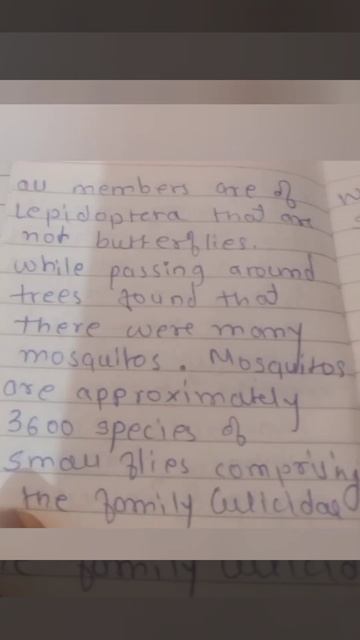 all members are of
Lepidoptera that are
not butterflies.
while passing around
trees found that
there were many
mosquitos. Mosquitos
are approximately
3600 species of
small flies comprising
the family Culicidae